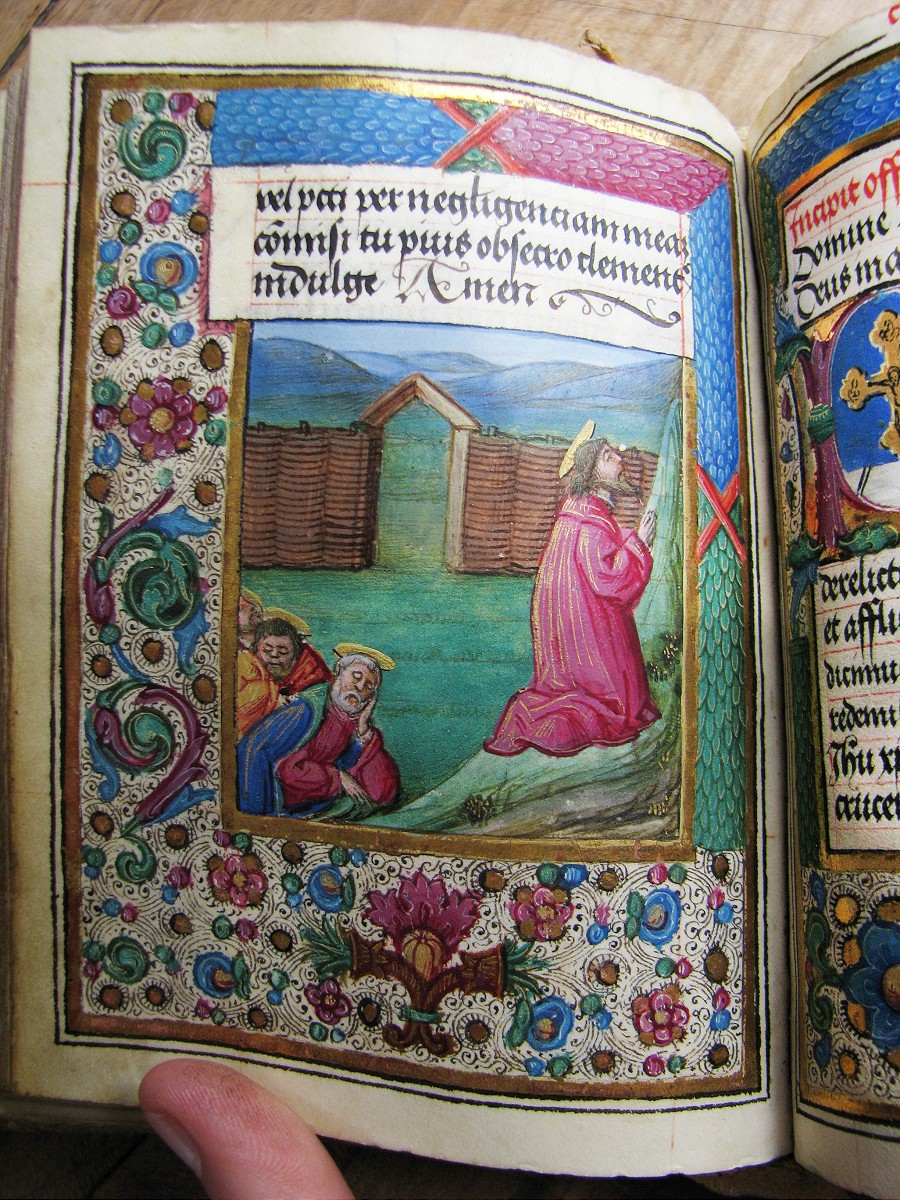 vel pcci per negligenciam meaz
comisi tu pius obsecro clemens
indulge Amen
Incipit off
Domine
Deus me
derelict
et afflu
dicimu
redemi
Jhu xp
cruce